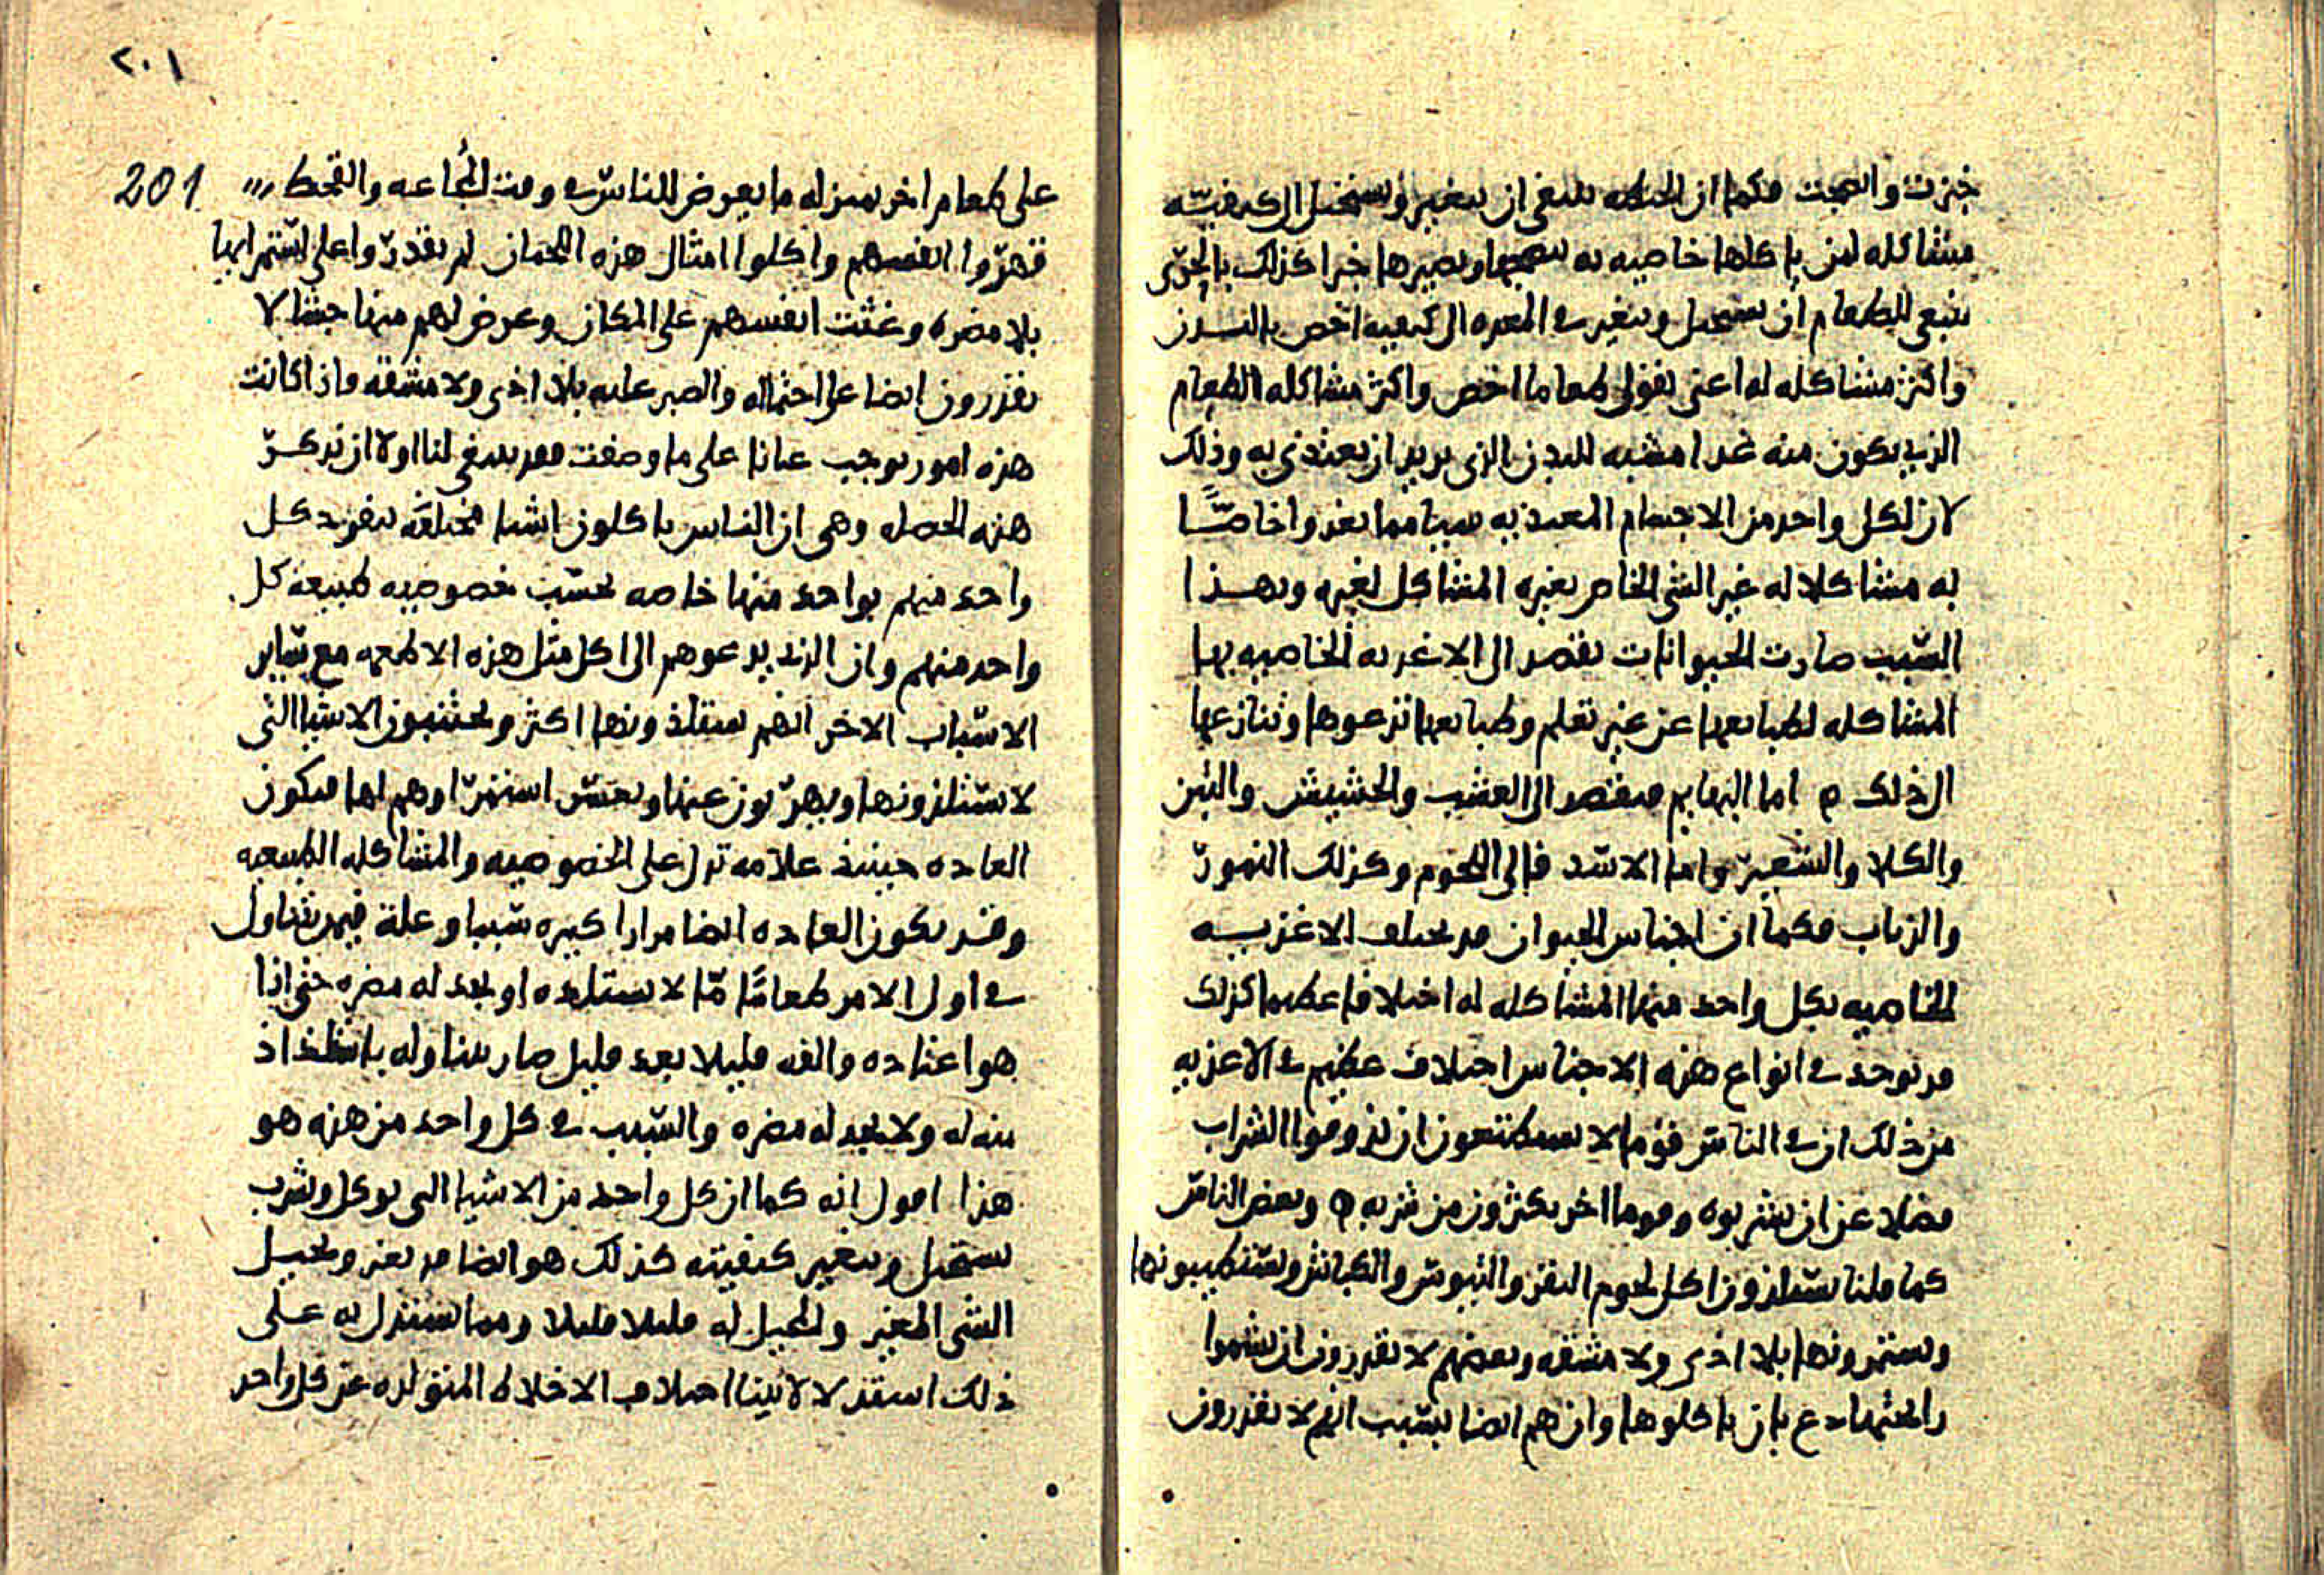 خبزت وانضجت فكما ان الحنطه ينبغي ان يتغير ويستحيل الى كيفيته
مشاكله لمن ياكلها خاصيه به ينضجها ويصيرها خبزا كذلك بالحرّى
ينبغي للطعام ان يستحيل ويتغير في المعده الى كيفيه اخص بالبدن
واكثر مشاكله له اعنى بقولى طعاما اخص واكثر مشاكله الطعام
الذي يكون منه غدا مشبه للبدن الذى يريد ان يغتدى به وذلك
لان لكل واحد من الاجسام المغتذيه سببا مما يغدوا خاصًّا
به مشاكلا له غير الشى الخاص بغيره المشاكل لغيره وبهذا
السّبب صارت الحيوانات تقصد الى الاغديه الخاصيه بها
المشاكله لطبايعها عن غير تعلم وطبايعها تدعوها وتنازعها
الى ذلك ه اما البهايم فيقصد الى العشب والحشيش والتبن
والكلا والشعير واما الاسّد فالى اللحوم وكذلك النمورّ
والذياب فكما ان اجناس الحيوان قد يختلف الاغذيه
الخاصيه بكل واحد منها المشاكله له اختلافا عظيما كذلك
قد توجد في انواع هذه الاجناس اختلاف عظيم في الاغذيه
من ذلك ان في الناسّ قوما لا يستطيعون ان يذوقوا الشراب
فضلا عن ان يشربوه وقوما اخر يكثرون من شربه ه وبعض الناسّ
كما قلنا يسّتلذون اكل لحوم البقر والتيوسّ والكباش ويسّتطيبونها
ويستمرونها بلا اذى ولا مشقه وبعضهم لا يقدرون ان يشموا
رايحتها دع بان ياكلوها وان هم ايضا بسّبب انهم لا يقدرون
٢٠١
201
على طعام اخر بمنزله ما يعرض للناسّ في وقت المجُاعه والقحط
قهرّوا انفسهم واكلوا امثال هذه اللحمان لم يقدرّوا على اسّتمرايها
بلا مضره وغثت انفسهم على المكان وعرض لهم منها جشا لا
يقدرون ايضا على احتماله والصبر عليه بلا اذى ولا مشقه واذا كانت
هذه امور توجب عيانا على ما وصفت فقد ينبغى لنا اولا ان نذكرّ
هذه الخصله وهى ان الناس ياكلون اشيا مختلفه ينفرد كل
واحد منهم بواحد منها خاصه بحسّب خصوصيه طبيعه كل
واحد منهم وان الذي يدعوهم الى اكل مثل هذه الاطعمه مع سّاير
الاسّباب الاخر انهم يستلذونها اكثر ويجتنبون الاشيا التى
لا يسّتلذونها ويهرّبون عنها ويعسّر استمرّاوهم لها فيكون
العاده حينيذ علامه تدل على الخصوصيه والمشاكله الطبيعيه
وقد يكون العاده ايضا مرارا كثيره سّببا وعلة فيمن يتناول
في اول الامر طعامًا مّا لا يستلذه او يجد له مضره حتى اذا
هو اعتاده والفه قليلا بعد قليل صار يتناوله باستلذاذ
منه له ولا يجد له مضره والسّبب في كل واحد من هذه هو
هذا اقول انه كما ان كل واحد من الاشيا التى توكل وتشرب
يستحيل ويتغير كيفيته كذلك هو ايضا قد يغير ويحيل
الشى المغير والمحيل له قليلا قليلا ومما يستدل به على
ذلك استدلالا بينا اختلاف الاخلاط المتولده عن كل واحد